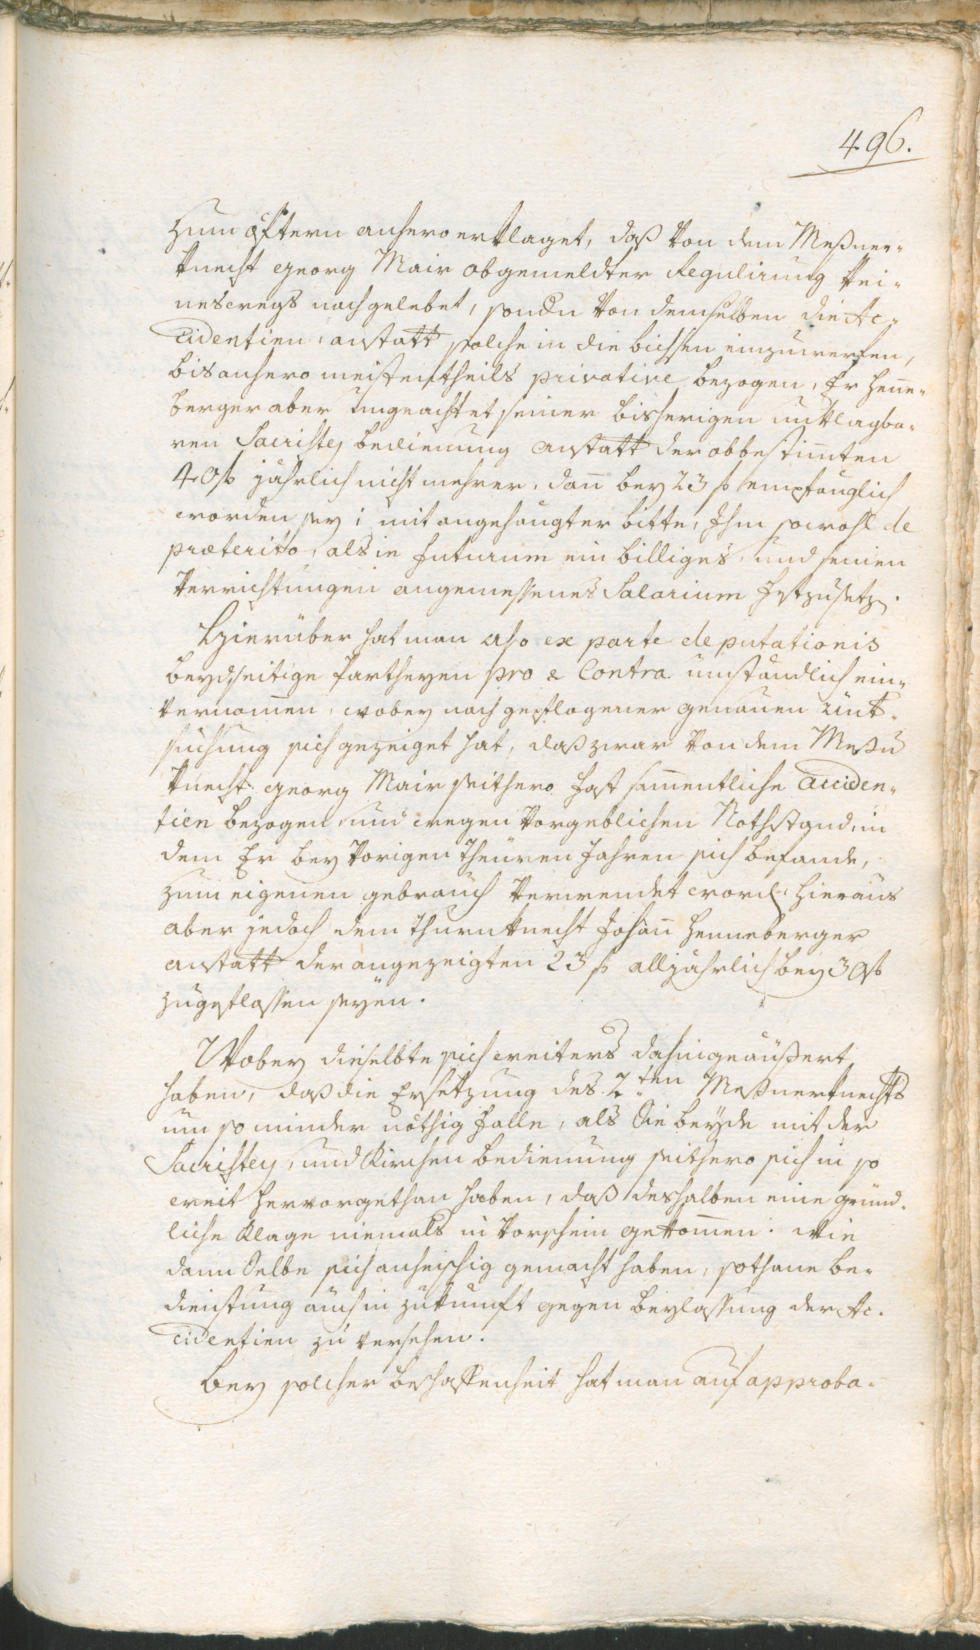 496.
zum öftern anhero erklaget, daß von dem Meßner-
knecht Georg Mair obgemeldter Regulirung kei-
neswegs nachgelebet, sondn von demselben die Ac-
cidentien, anstatt solche in die bichsen einzuwerfen,
bis anhero meistentheils privative bezogen, Er Hene-
berger aber Ungeachtet seiner bisherigen unklagba-
ren Sacristey bedienung anstatt der obbestimten
40 f. jährlich nicht mehrer, dan bey 23 f. empfänglich
worden sey; mit angehängter bitte, Ihm sowohl de
præterito, als in futurum ein billiges und seinen
Verrichtungen angemessenes Salarium festzusetz.
Hierüber hat man also ex parte deputationis
beydseitige Partheyen pro & Contra umständlich ein-
vernomen, wobey nach gepflogener genauen Unt-
suchung sich gezeiget hat, daß zwar von dem Meßn
knecht Georg Mair seithero fast samentliche Acciden-
tien bezogen, und wegen vorgeblichen Nothstand, in
dem Er bey vorigen theuren Jahren sich befande,
zum eigenen gebrauch verwendet word, hieraus
aber jedoch dem Thurnknecht Johan Henneberger
anstatt der angezeigten 23 f. alljährlich bey 30 f.
zugeflossen seyen.
Wobey dieselbte sich weiters dahin geäußert
haben, daß die Ersetzung des 2ten Meßnerknechts
um so minder nöthig falle, als Sie beyde mit der
Sacristey, und Kirchen bedienung seithero sich in so
weit hervorgethan haben, daß deshalben eine gründ-
liche Klage niemals in Vorschein gekomen: wie
dann Selbe sich anheischig gemacht haben, sothane be-
dienstung auch in Zukunft gegen beylassung der Ac-
cidentien zu versehen.
Bey solcher beschaffenheit hat man auf approba-